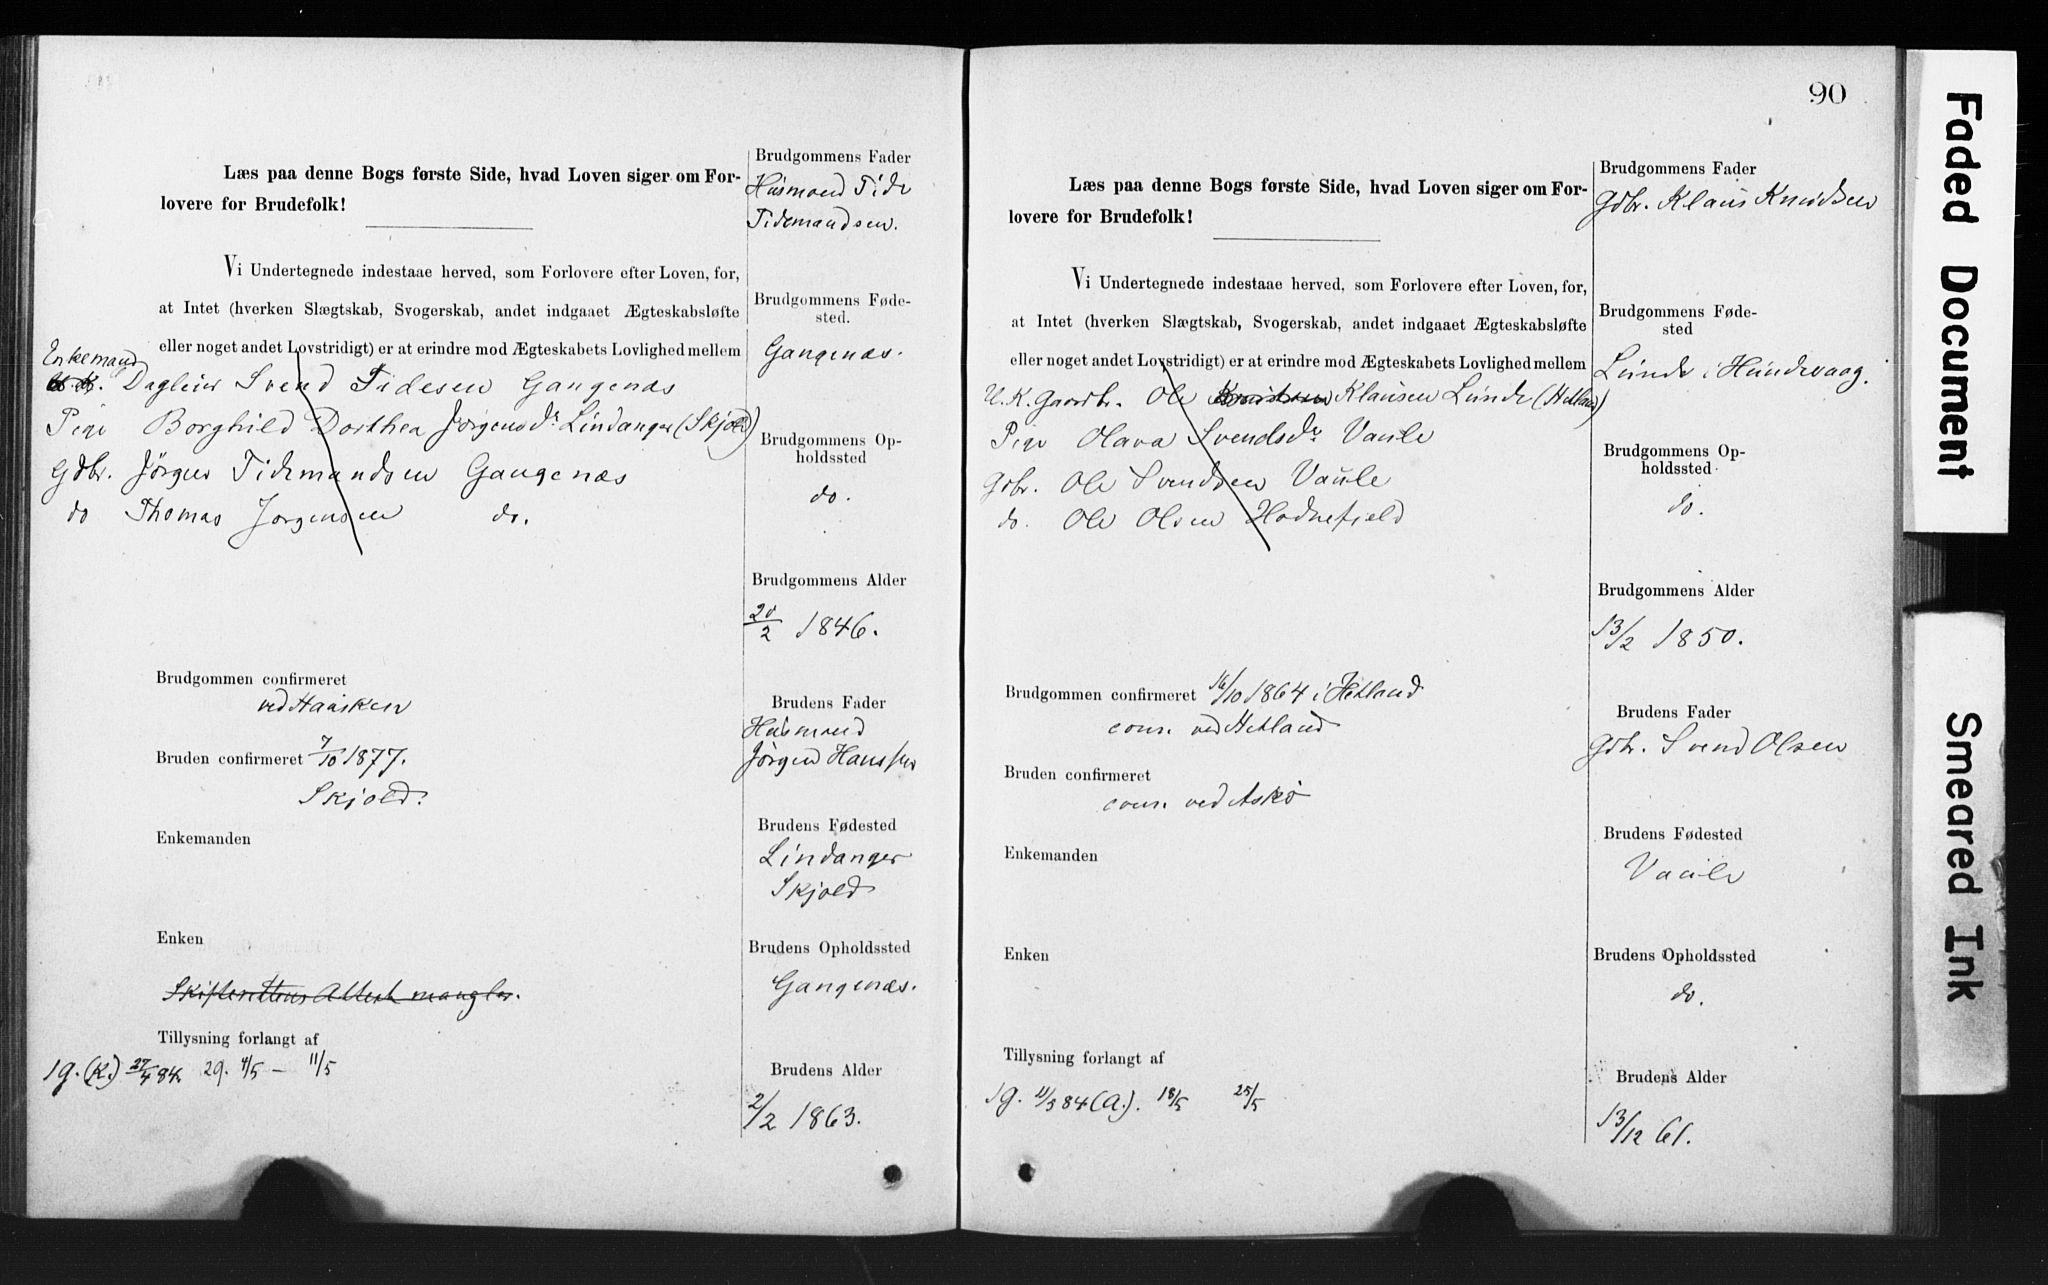 Læs paa denne Bogs første Side, hvad Loven siger om For-
lovere for Brudefolk!
Vi Undertegnede indestaae herved, som Forlovere efter Loven, for,
at Intet (hverken Slægtskab, Svogerskab, andet indgaaet Ægteskabsløfte
eller noget andet Lovstridigt) er at erindre mod Ægteskabets Lovlighed mellem
Enkemand
Daglejer Svend Tidesen Gangenæs
Pige Borghild Dorthea Jørgensdr Lindanger (Skjold)
Gdbr. Jörgen Tidemandsen Gangenæs
do Thomas Jørgensen do.
Brudgommen confirmeret
ved Haasken
Bruden confirmeret 7/10 1877.
Skjold.
Enkemanden
Enken
Skifterettens Attest mangler.
Tillysning forlangt af
1g. (K.) 27/4 84. 2g. 4/5 - 11/5
Brudgommens Fader
Husmand Tide
Tidemandsen.
Brudgommens Føde-
sted.
Gangenæs.
Brudgommens Op-
holdssted
do.
Brudgommens Alder
20/2 1846.
Brudens Fader
Husmand
Jörgen Hanssen
Brudens Fødested
Lindanger
Skjold
Brudens Opholdssted
Gangenæs.
Brudens Alder
2/2 1863.
90
Læs paa denne Bogs første Side, hvad Loven siger om For-
lovere for Brudefolk!
Vi Undertegnede indestaae herved, som Forlovere efter Loven, for,
at Intet (hverken Slægtskab, Svogerskab, andet indgaaet Ægteskabsløfte
eller noget andet Lovstridigt) er at erindre mod Ægteskabets Lovlighed mellem
U. K. Gaardbr. Ole Klausen Lunde (Hetland)
Pige Olava Svendsdr Vaule
Gdbr. Ole Svendsen Vaule
do. Ole Olsen Hodnefjeld
Brudgommen confirmeret 16/10 1864 i Hetland
conf. ved Hetland
Bruden confirmeret
conf. ved Askö
Enkemanden
Enken
Tillysning forlangt af
1g. 11/5 84 (A.). 18/5 25/5
Brudgommens Fader
Gdbr. Klaus Knudsen
Brudgommens Føde-
sted
Lunde i Hundevaag.
Brudgommens Op-
holdssted
do.
Brudgommens Alder
13/2 1850.
Brudens Fader
Gdbr. Svend Olsen
Brudens Fødested
Vaule
Brudens Opholdssted
do.
Brudens Alder
13/12 61.
Faded Document
Smeared Ink